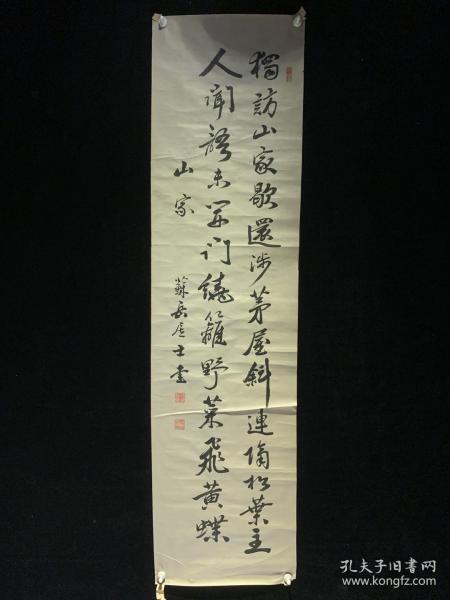 獨訪山家歇還涉茅屋斜連隔松葉主
人聞語未開门繞籬野菜飛黃蝶
山家
蘇岳居士書
孔夫子旧书网
www.kongfz.com